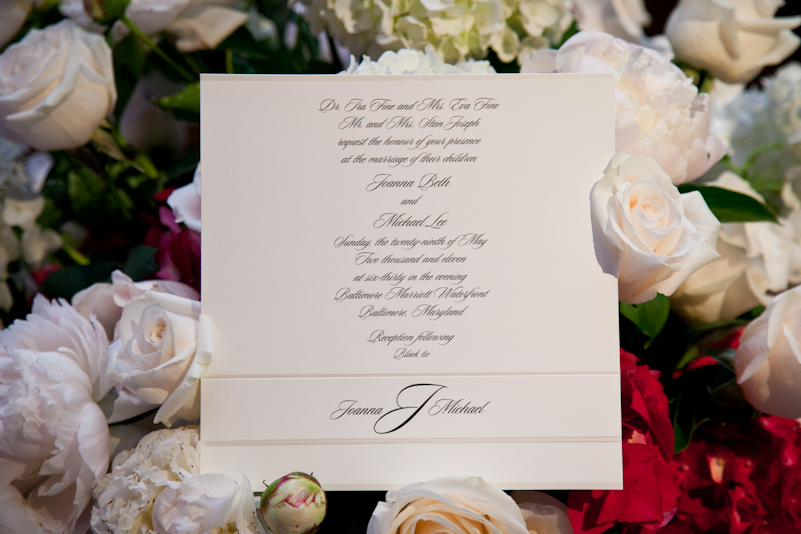 Dr. Ira Fine and Mrs. Eva Fine
Mr. and Mrs. Stan Joseph
request the honour of your presence
at the marriage of their children
Joanna Beth
and
Michael Lee
Sunday, the twenty-ninth of May
Two thousand and eleven
at six-thirty in the evening
Baltimore Marriott Waterfront
Baltimore, Maryland
Reception following
Black tie
Joanna J Michael